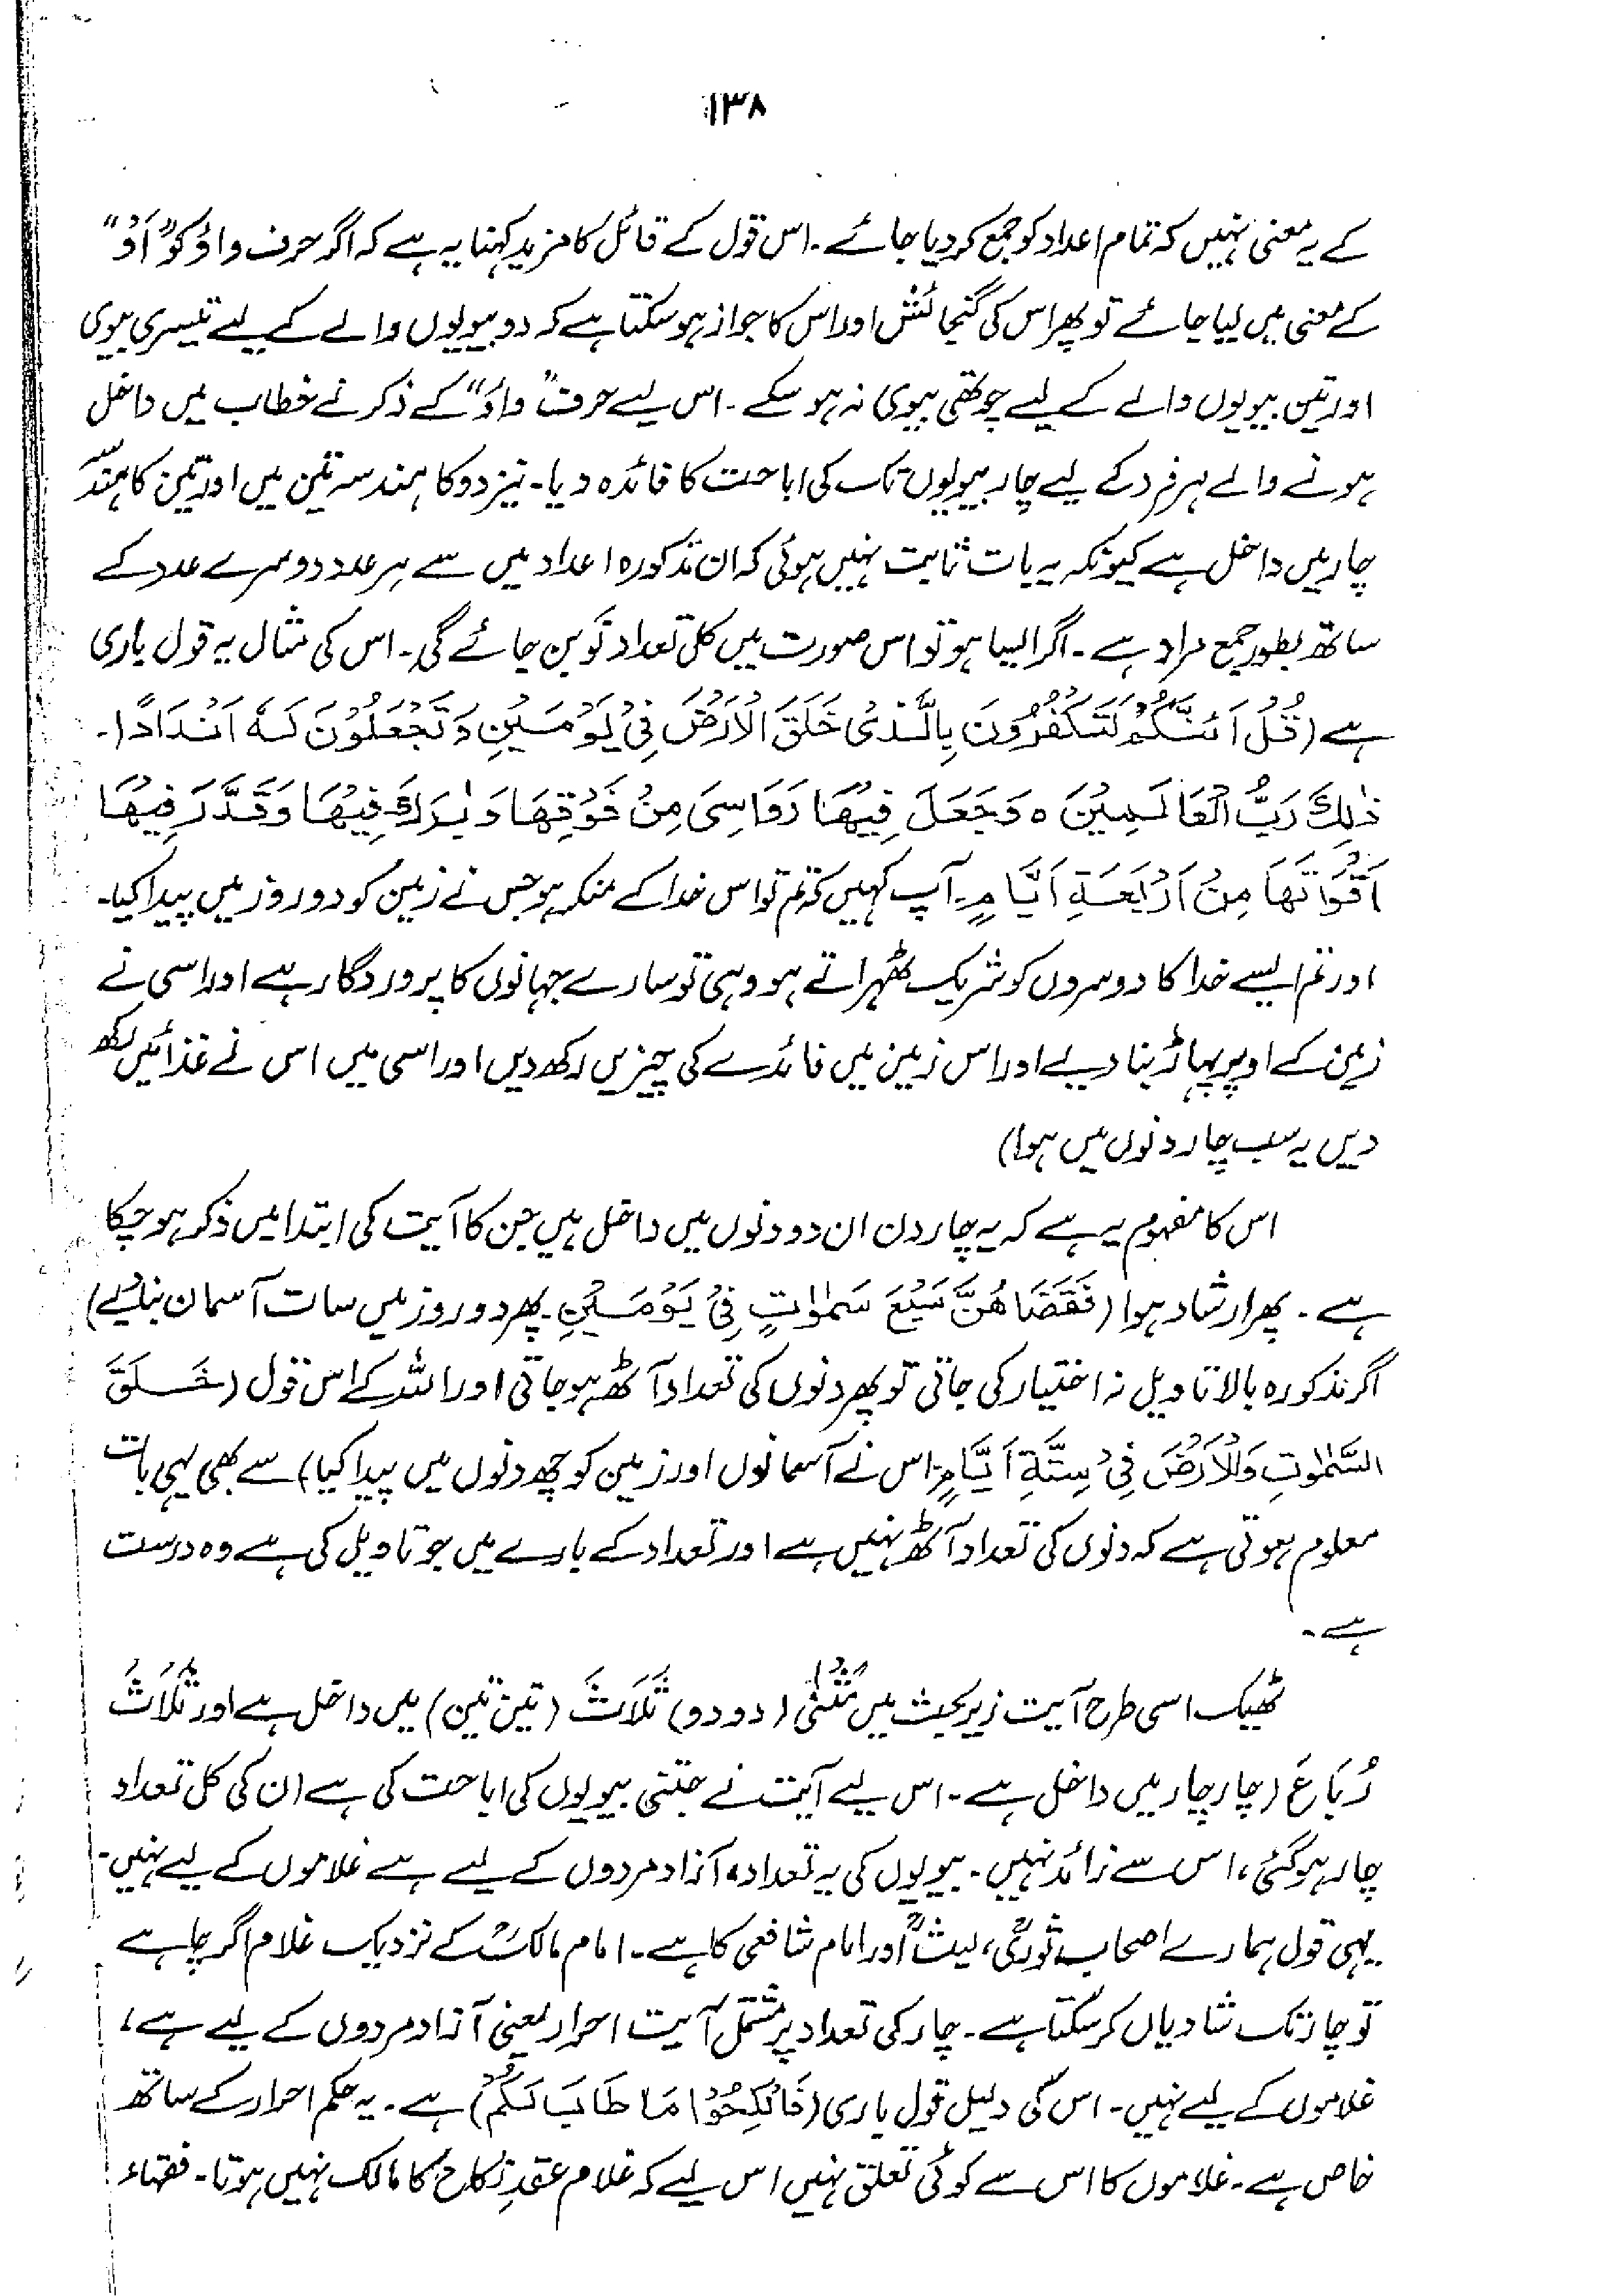 ۱۳۸
کے یہ معنی نہیں کہ تمام اعداد کو جمع کر دیا جائے۔ اس قول کے قائل کا مزید کہنا یہ ہے کہ اگر حرف واؤ کو "اَوْ"
کے معنی میں لیا جائے تو پھر اس کی گنجائش اور اس کا جواز ہو سکتا ہے کہ دو بیویوں والے کے لیے تیسری بیوی
اور تین بیویوں والے کے لیے چوتھی بیوی نہ ہو سکے۔ اس لیے حرف "واؤ" کے ذکر نے خطاب میں داخل
ہونے والے ہر فرد کے لیے چار بیویوں تک کی اباحت کا فائدہ دیا۔ نیز دو کا ہندسہ تین میں اور تین کا ہندسہ
چار میں داخل ہے کیونکہ یہ بات ثابت نہیں ہوئی کہ ان مذکورہ اعداد میں سے ہر عدد دوسرے عدد کے
ساتھ بطور جمع مراد ہے۔ اگر ایسا ہو تو اس صورت میں کل تعداد نو بن جائے گی۔ اس کی مثال یہ قول باری
ہے (قُلْ اَئِنَّكُمْ لَتَكْفُرُوْنَ بِالَّذِىْ خَلَقَ الْاَرْضَ فِىْ يَوْمَيْنِ وَتَجْعَلُوْنَ لَهٗ اَنْدَادًا۔
ذٰلِكَ رَبُّ الْعَالَمِيْنَ ہ وَجَعَلَ فِيْهَا رَوَاسِىَ مِنْ فَوْقِهَا وَبٰرَكَ فِيْهَا وَقَدَّرَ فِيْهَا
اَقْوَاتَهَا مِنْ اَرْبَعَةِ اَيَّامٍ۔ آپ کہیں کہ تم تو اس خدا کے منکر ہو جس نے زمین کو دو روز میں پیدا کیا۔
اور تم ایسے خدا کا دوسروں کو شریک ٹھہراتے ہو وہی تو سارے جہانوں کا پروردگار ہے اور اسی نے
زمین کے اوپر پہاڑ بنا دیے اور اس زمین میں فائدے کی چیزیں رکھ دیں اور اسی میں اس نے غذائیں رکھ
دیں یہ سب چار دنوں میں ہوا)
اس کا مفہوم یہ ہے کہ یہ چار دن ان دو دنوں میں داخل ہیں جن کا آیت کی ابتدا میں ذکر ہو چکا
ہے۔ پھر ارشاد ہوا (فَقَضَاهُنَّ سَبْعَ سَمٰوٰتٍ فِىْ يَوْمَيْنِ۔ پھر دو روز میں سات آسمان بنا دیے)
اگر مذکورہ بالا تاویل نہ اختیار کی جاتی تو پھر دنوں کی تعداد آٹھ ہو جاتی اور اللہ کے اس قول (خَلَقَ
السَّمٰوٰتِ وَالْاَرْضَ فِىْ سِتَّةِ اَيَّامٍ۔ اس نے آسمانوں اور زمین کو چھ دنوں میں پیدا کیا) سے بھی یہی بات
معلوم ہوتی ہے کہ دنوں کی تعداد آٹھ نہیں ہے اور تعداد کے بارے میں جو تاویل کی ہے وہ درست
ہے۔
ٹھیک اسی طرح آیت زیر بحث میں مَثْنٰى (دو دو) ثُلَاثَ (تین تین) میں داخل ہے اور ثُلَاثَ
رُبَاعَ (چار چار میں داخل ہے۔ اس لیے آیت نے جتنی بیویوں کی اباحت کی ہے ان کی کل تعداد
چار ہو گئی، اس سے زائد نہیں۔ بیویوں کی یہ تعداد، آزاد مردوں کے لیے ہے غلاموں کے لیے نہیں۔
یہی قول ہمارے اصحاب، ثوریؒ، لیثؒ اور امام شافعی کا ہے۔ امام مالکؒ کے نزدیک غلام اگر چاہے
تو چار تک شادیاں کر سکتا ہے۔ چار کی تعداد پر مشتمل آیت احرار یعنی آزاد مردوں کے لیے ہے،
غلاموں کے لیے نہیں۔ اس کی دلیل قول باری (فَانْكِحُوْا مَا طَابَ لَكُمْ) ہے۔ یہ حکم احرار کے ساتھ
خاص ہے۔ غلاموں کا اس سے کوئی تعلق نہیں اس لیے کہ غلام عقدِ نکاح کا مالک نہیں ہوتا۔ فقہاء